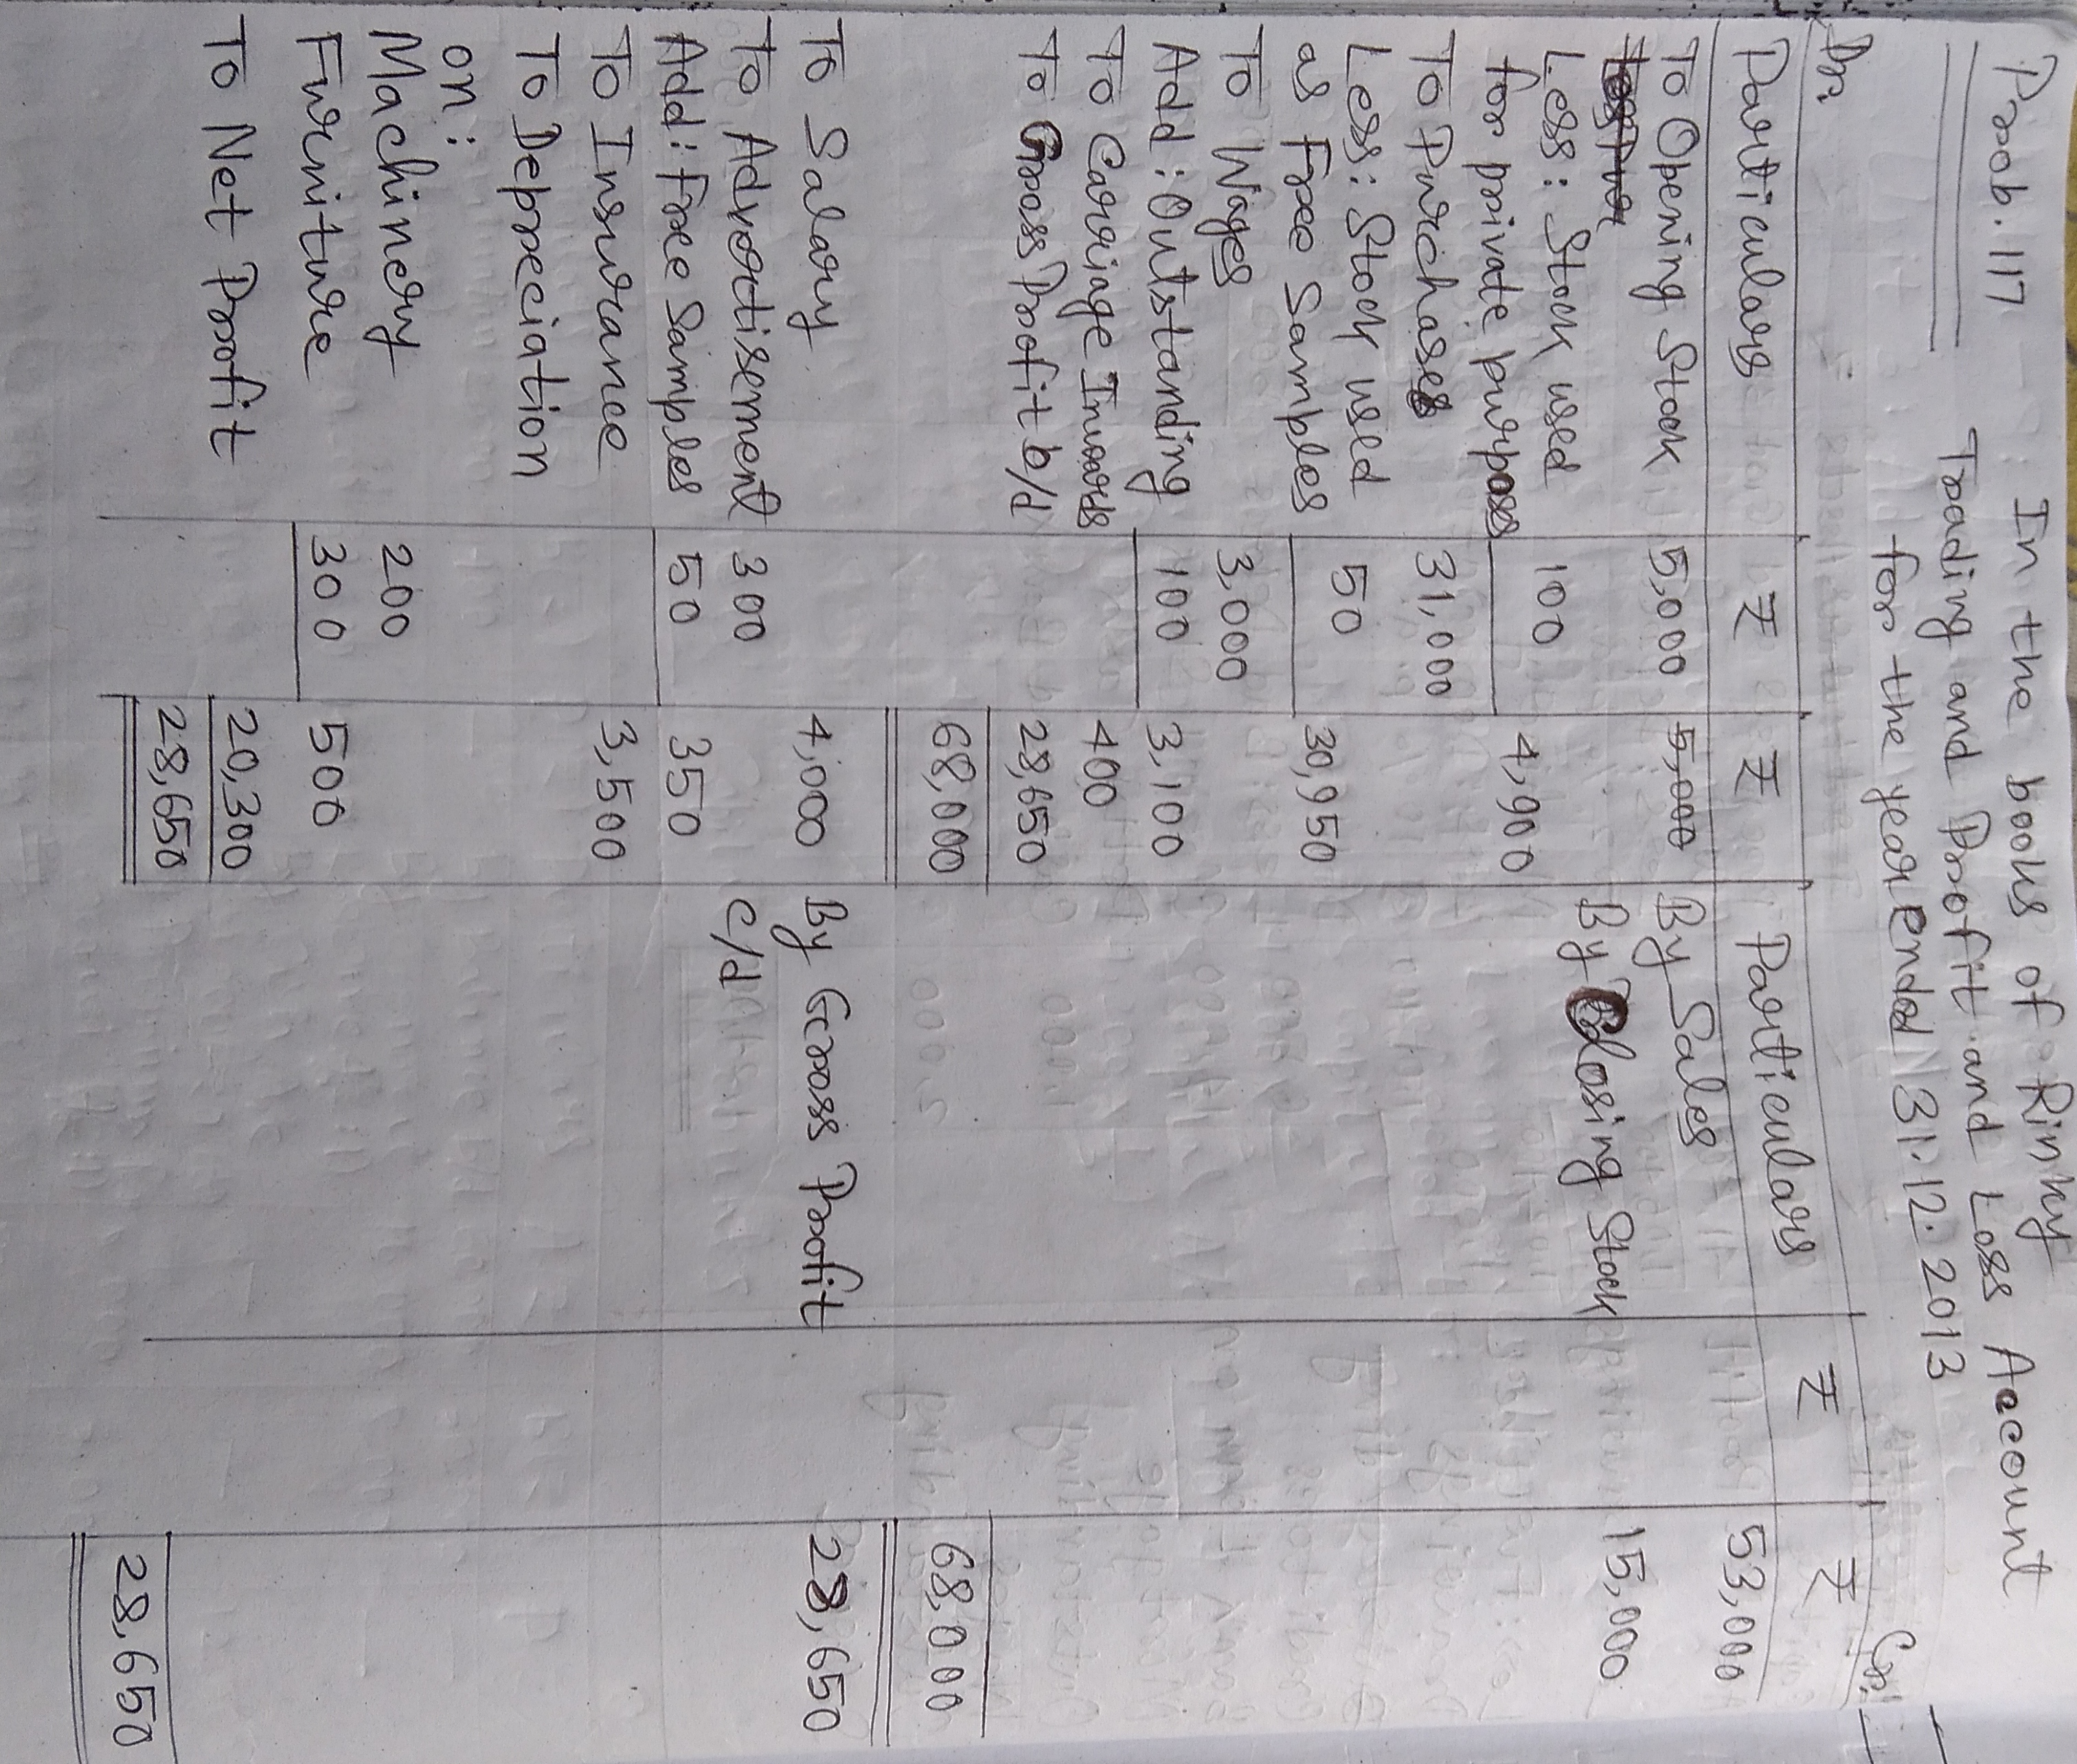 Prob. 117
In the books of Rinky
Trading and Profit and Loss Account
for the year ended 31.12.2013
Dr. Cr.
Particulars ₹ ₹ Particulars ₹ ₹
To Opening Stock 5,000 5,000 By Sales 53,000
Less: Stock used 100 By Closing Stock 15,000
for private purposes 4,900
To Purchases 31,000
Less: Stock used 50
as Free Samples 30,950
To Wages 3,000
Add: Outstanding 100 3,100
To Carriage Inwards 400
To Gross Profit b/d 28,650
68,000 68,000
To Salary 4,000 By Gross Profit 28,650
To Advertisement 300 c/d
Add: Free Samples 50 350
To Insurance 3,500
To Depreciation
on:
Machinery 200
Furniture 300 500
To Net Profit 20,300
28,650 28,650